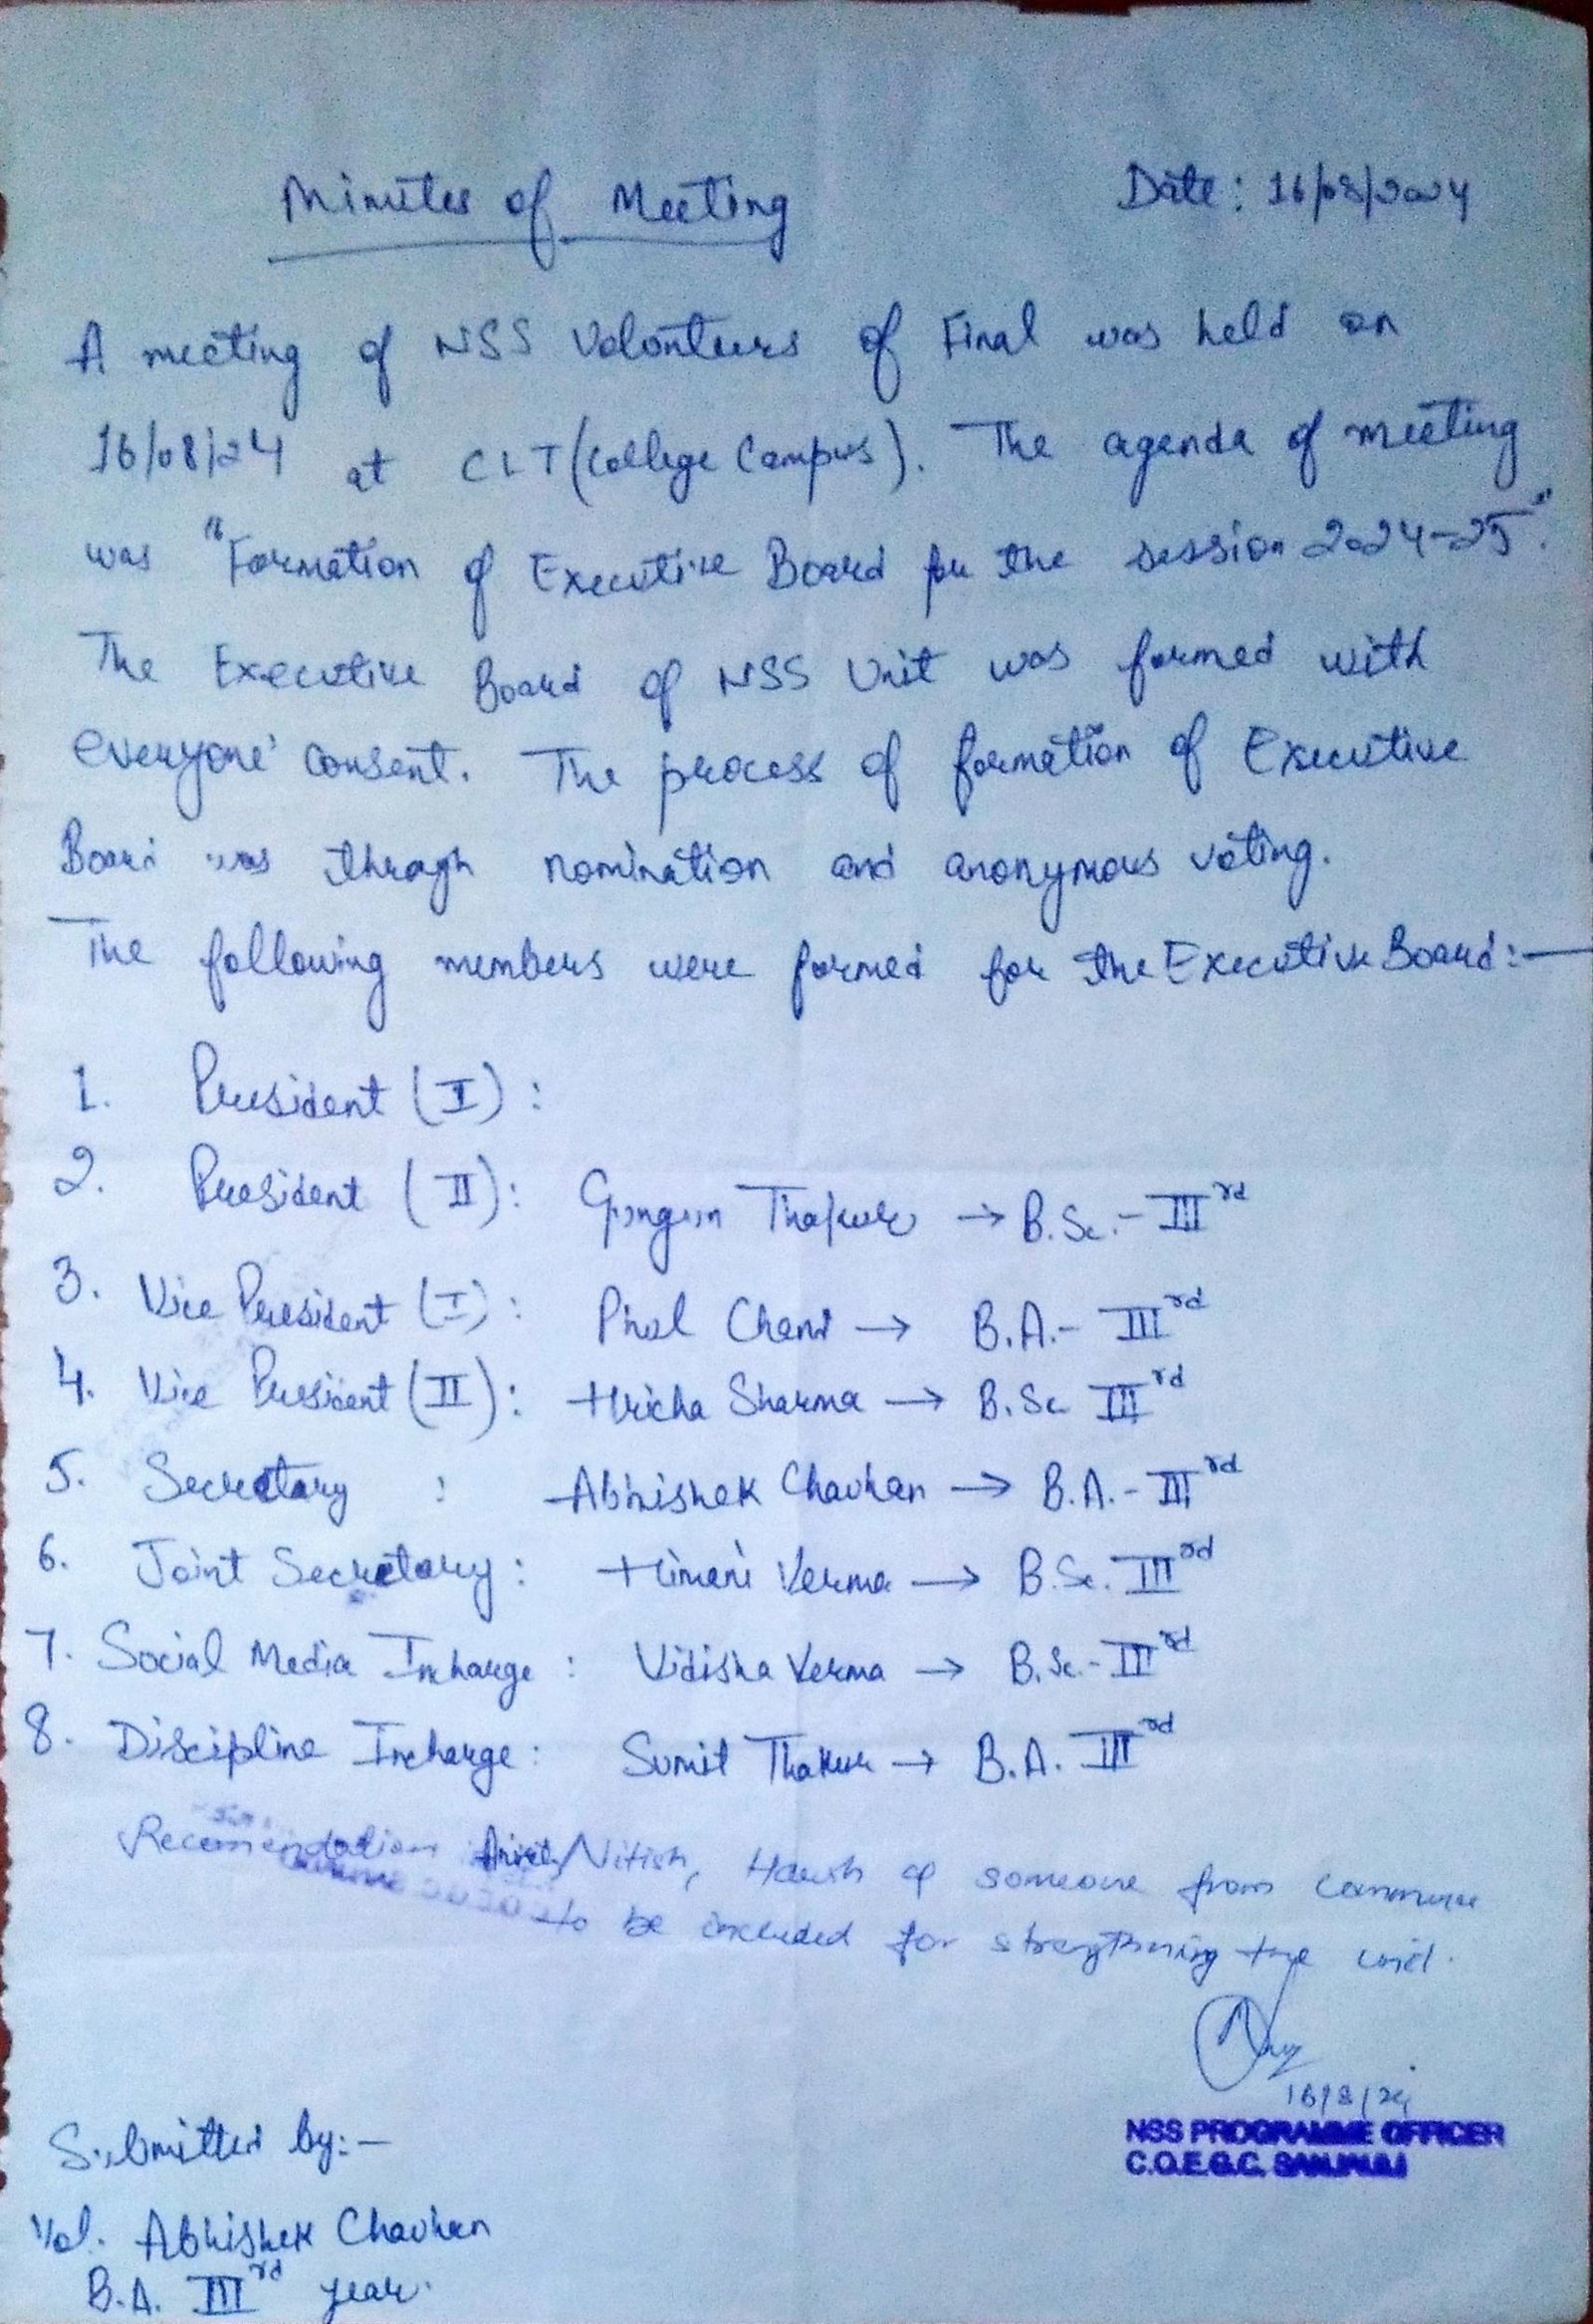 Minutes of Meeting
Date: 16/08/2024
A meeting of NSS Volunteers of Final was held on
16/08/24 at CLT (College Campus). The agenda of meeting
was "Formation of Executive Board for the session 2024-25".
The Executive Board of NSS Unit was formed with
everyone' consent. The process of formation of Executive
Board was through nomination and anonymous voting.
The following members were formed for the Executive Board:—
1. President (I) :
2. President (II): Gungun Thakur → B.Sc.- III rd
3. Vice President (I): Phul Chand → B.A.- III rd
4. Vice President (II): Hricha Sharma → B.Sc III rd
5. Secretary : Abhishek Chauhan → B.A.- III rd
6. Joint Secretary : Himani Verma → B.Sc. III rd
7. Social Media Incharge : Vidisha Verma → B.Sc.- III rd
8. Discipline Incharge : Sumit Thakur → B.A. III rd
Recomendation /Nitish, Harsh & someone from commerce
to be included for strengthening the unit.
16/8/24
NSS PROGRAMME OFFICER
C.O.E.G.C. SANJAULI
Submitted by:-
Vol. Abhishek Chauhan
B.A. III rd year.